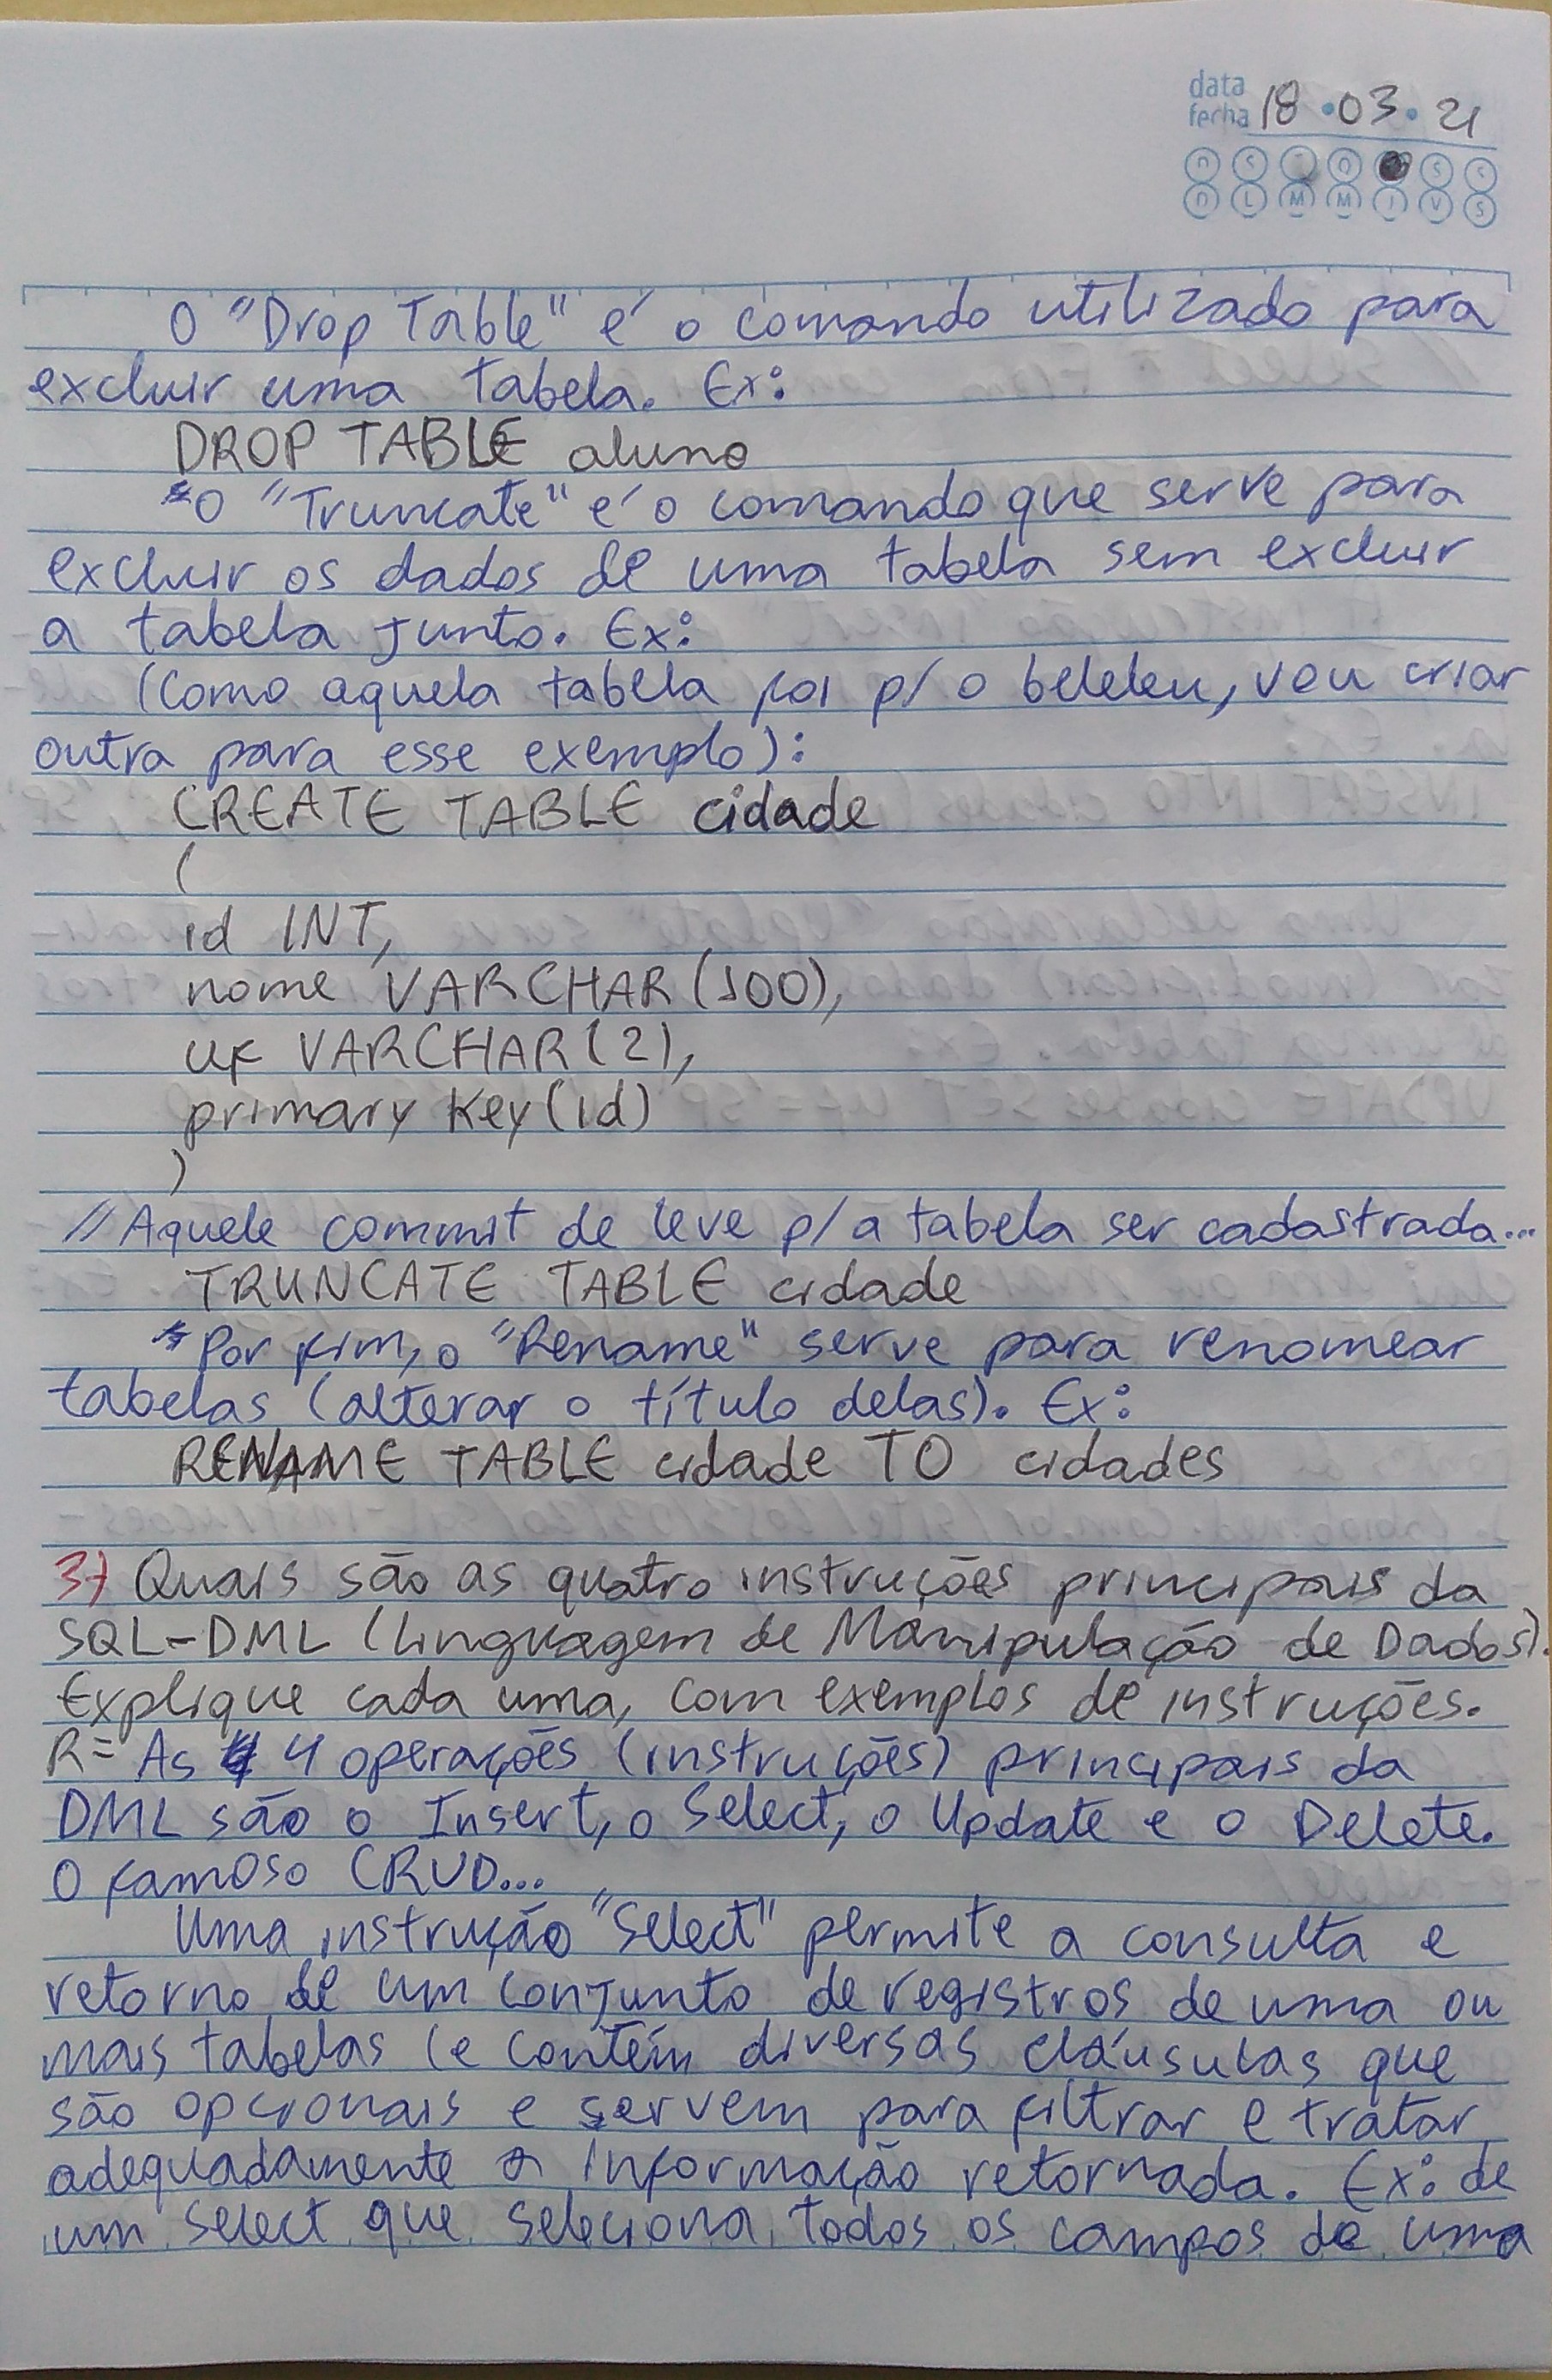 data
fecha 18 • 03 • 21
D S T Q Q S S
D L M M J V S
O "Drop Table" é o comando utilizado para
excluir uma tabela. Ex:
DROP TABLE aluno
*O "Truncate" é o comando que serve para
excluir os dados de uma tabela sem excluir
a tabela junto. Ex:
(Como aquela tabela foi p/ o beleleu, vou criar
outra para esse exemplo):
CREATE TABLE cidade
(
id INT,
nome VARCHAR(100),
uf VARCHAR(2),
primary key(id)
)
//Aquele commit de leve p/ a tabela ser cadastrada...
TRUNCATE TABLE cidade
*Por fim, o "Rename" serve para renomear
tabelas (alterar o título delas). Ex:
RENAME TABLE cidade TO cidades
3) Quais são as quatro instruções principais da
SQL-DML (Linguagem de Manipulação de Dados).
Explique cada uma, com exemplos de instruções.
R= As 4 operações (instruções) principais da
DML são o Insert, o Select, o Update e o Delete.
O famoso CRUD...
Uma instrução "Select" permite a consulta e
retorno de um conjunto de registros de uma ou
mais tabelas (e contém diversas cláusulas que
são opcionais e servem para filtrar e tratar
adequadamente a informação retornada. Ex: de
um select que seleciona todos os campos de uma